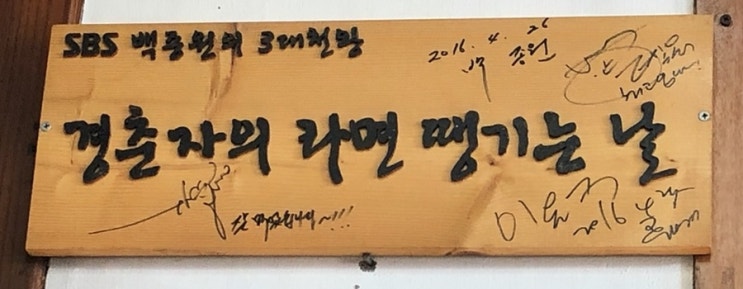 SBS 백종원의 3대천왕
2016. 4. 26
경춘자의 라면 땡기는 날
잘 먹었습니다~!!!
2016